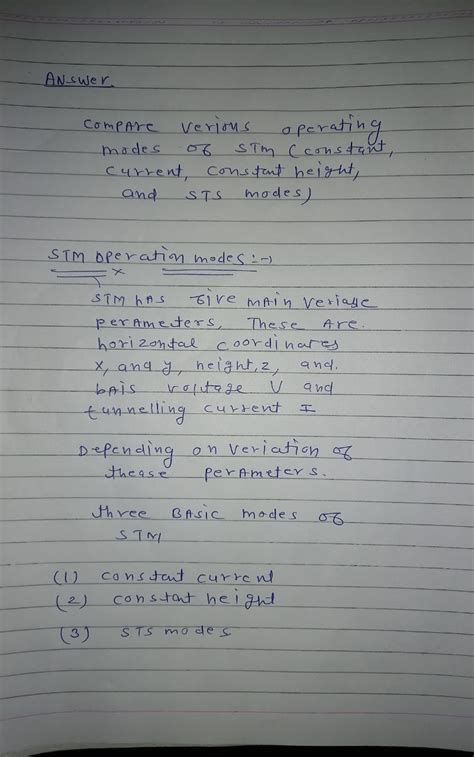 Answer.
compare verious operating
modes of STM (constant,
current, constant height,
and STS modes)
STM operation modes :-)
STM has five main veriage
perameters, These are.
horizontal coordinates
x, and y, height, z, and.
bais voltage V and
tunnelling current I
Depending on veriation of
thease perameters.
three Basic modes of
STM
(1) constant current
(2) constant height
(3) STS modes